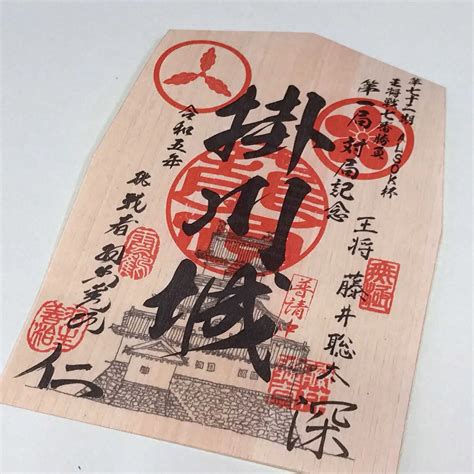 第七十二期 ALSOK杯
王将戦七番勝負
第一局対局記念
王将 藤井聡太
深
掛川城
普請中
令和五年
挑戦者 羽生善治
仁